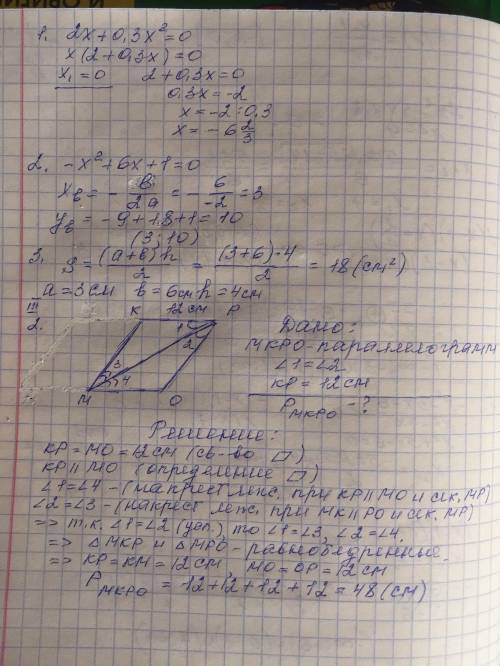 1. 2x+0,3x²=0
x(2+0,3x)=0
x₁=0 2+0,3x=0
0,3x=-2
x=-2:0,3
x=-6 2/3
2. -x²+6x+1=0
xв=-в/2a=-6/-2=3
yв=-9+18+1=10
(3;10)
3. S=(a+b)h/2=(3+6)·4/2=18(см²)
a=3см b=6см h=4см
III
2. K 12см P
1 2
3 4
M O
Дано:
MKPO-параллелограмм
∠1=∠2
KP=12см
P MKPO -?
Решение:
KP=MO=12см (св-во ▱)
KP∥MO (определение ▱)
∠1=∠4-(накрест леж. при KP∥MO и сек. MP)
∠2=∠3-(накрест леж. при MK∥PO и сек. MP)
=> т.к. ∠1=∠2 (усл.), то ∠1=∠3, ∠2=∠4.
=> △MKP и △MPO-равнобедренные.
=> KP=KM=12см, MO=OP=12см
P MKPO = 12+12+12+12=48(см)